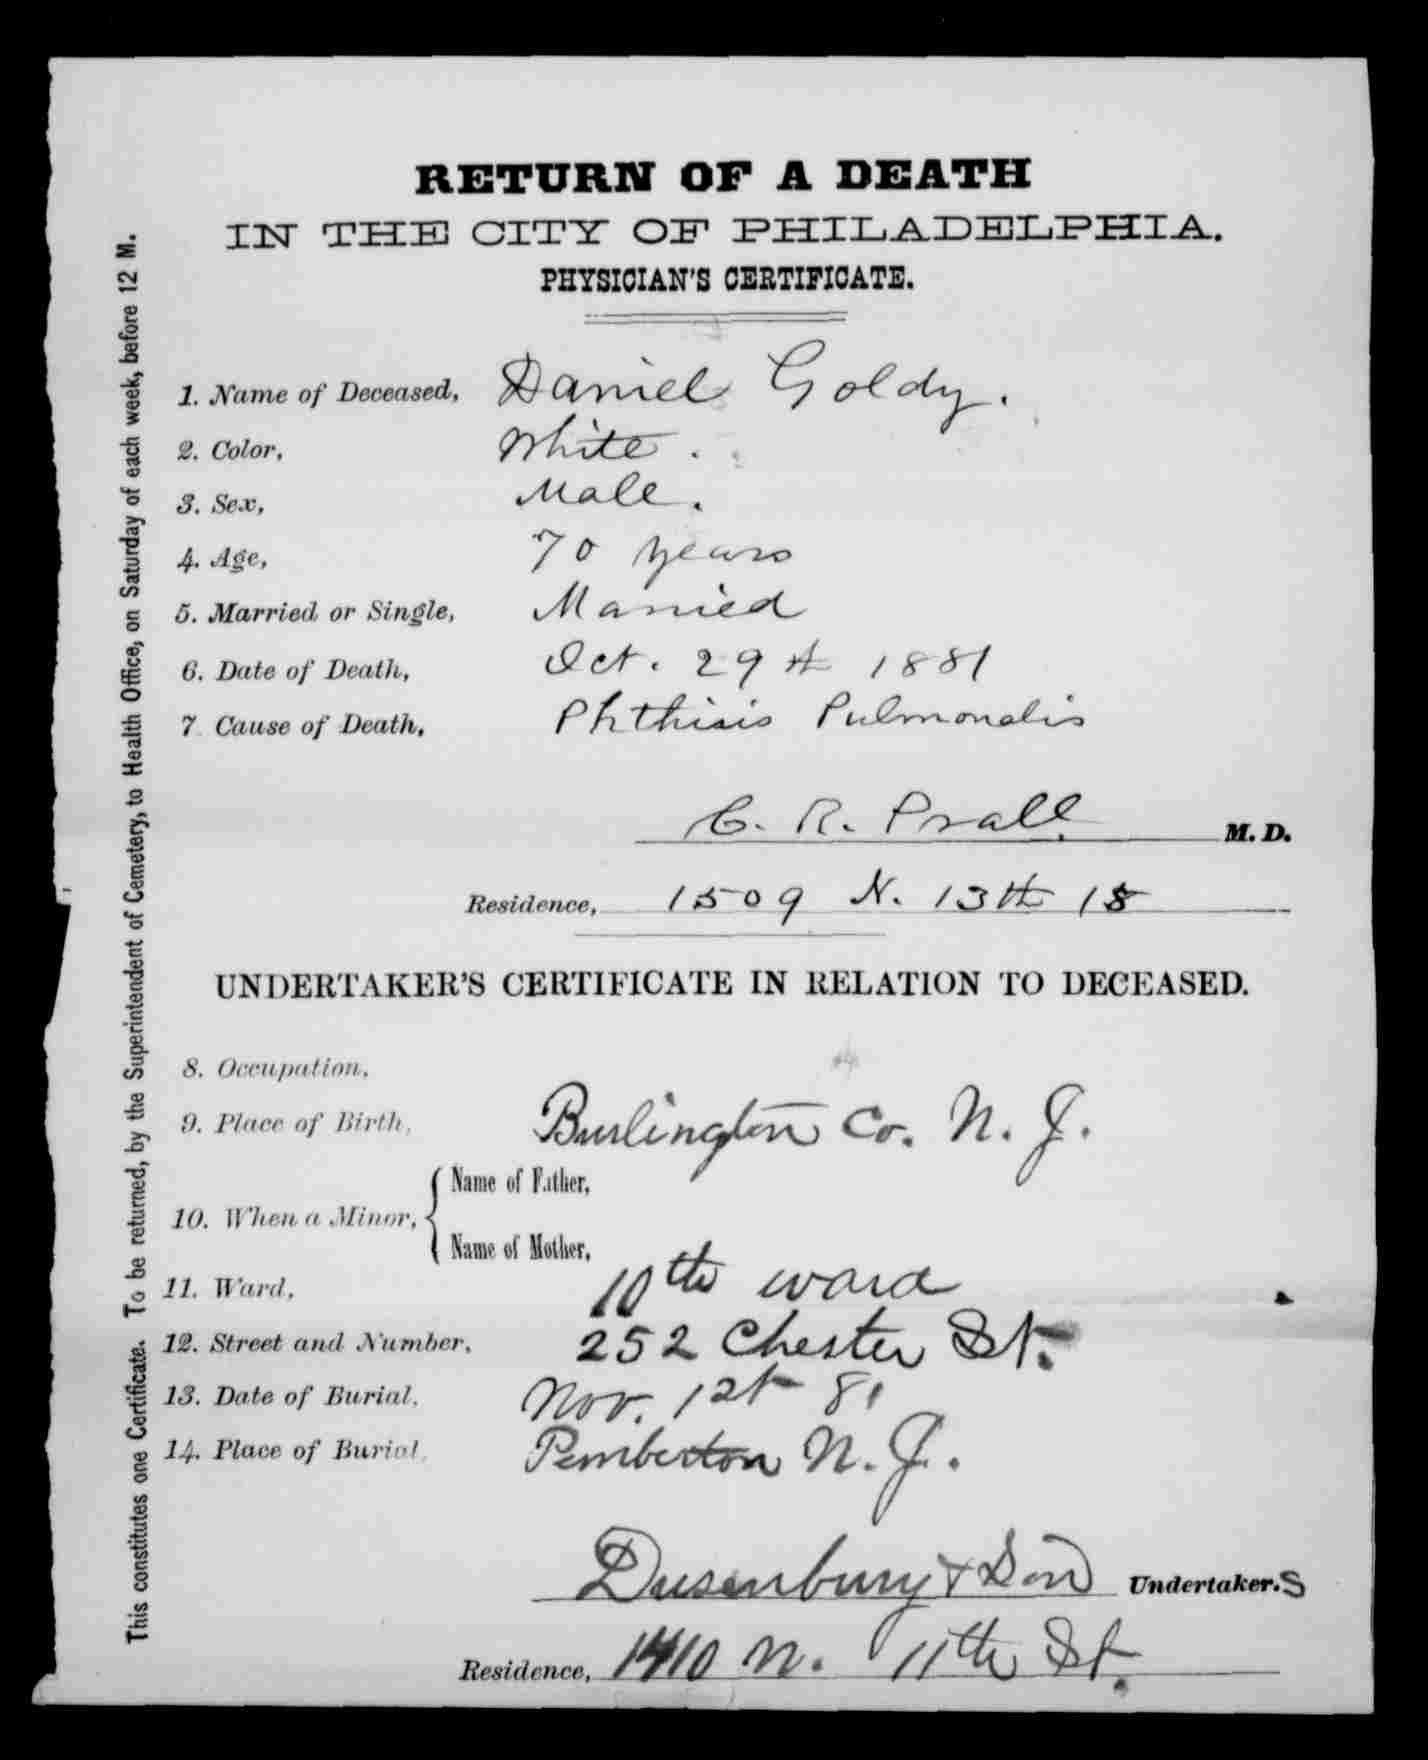 RETURN OF A DEATH
IN THE CITY OF PHILADELPHIA.
PHYSICIAN'S CERTIFICATE.
1. Name of Deceased, Daniel Goldy.
2. Color, White.
3. Sex, Male.
4. Age, 70 years
5. Married or Single, Married
6. Date of Death, Oct. 29th 1881
7 Cause of Death, Phthisis Pulmonalis
C. R. Prall M. D.
Residence, 1509 N. 13th
UNDERTAKER'S CERTIFICATE IN RELATION TO DECEASED.
8. Occupation,
9. Place of Birth, Burlington Co. N. J.
10. When a Minor, { Name of Father,
Name of Mother,
11. Ward, 10th ward
12. Street and Number, 252 Chester St.
13. Date of Burial, Nov. 1st 81
14. Place of Burial, Pemberton N. J.
Dusenbury & Son Undertaker.s
Residence, 1410 N. 11th St.
This constitutes one Certificate. To be returned, by the Superintendent of Cemetery, to Health Office, on Saturday of each week, before 12 M.